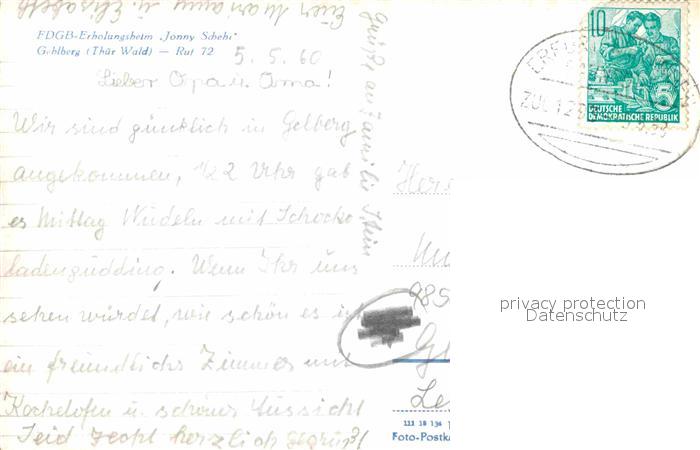 FDGB-Erholungsheim „Jonny Scheh‘
Gehlberg (Thür Wald) — Ruf 72
5. 5. 60
Lieber Opa u. Oma!
Wir sind günklich in Gelberg
angekommen, 1/2 2 Uhr gab
es Mittag Nudeln mit Schoko
ladenpudding. Wenn Ihr uns
sehen würdet, wie schön es ist
ein freundlichs Zimmer mit
Kachelofen u. schöner Aussicht
Seid recht herzlich gegrüßt
Eier u. Elisabeth
Grüße an Familie Stein
10
5
DEUTSCHE
DEMOKRATISCHE REPUBLIK
ZUG
Herr
985
111 18 134
Foto-Postka
privacy protection
Datenschutz